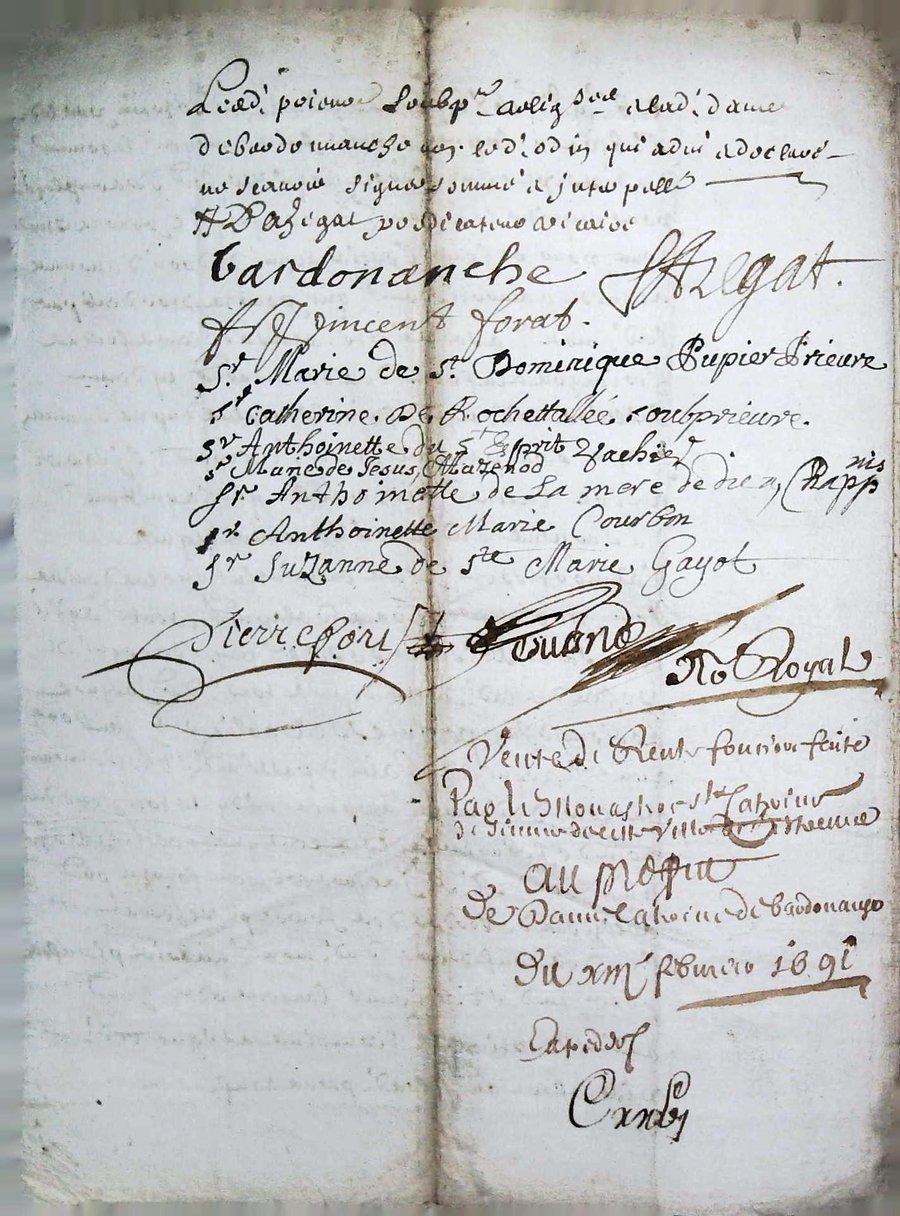 Lesd. prieure soubp.re & relig.ses & lad. dame
de bardonnanche non led. odin qui a dit & declaré
ne scavoir signer sommé & interpellé
predicateur vicaire
Bardonanche
Vincent forat.
Sr. Marie de St. Dominique Pupier Prieure
Sr Catherine De Rochettalleé soubprieure.
Sr Anthoinette du St Esprit Vachier
Sr Marie de Jesus Mazenod
Sr Anthoinette de La mere de dieu Chappuis
Sr Anthoinette Marie Courbon
Sr Suzanne de Ste Marie Gayot
Pierrefort
No Royal
Vente de Rente fonciere faite
Par le Monastere Ste Catherine
de Sienne de cette Ville
au proffit
de Dame Catherine de bardonanche
Du xiii febvrier 1691
Expedié